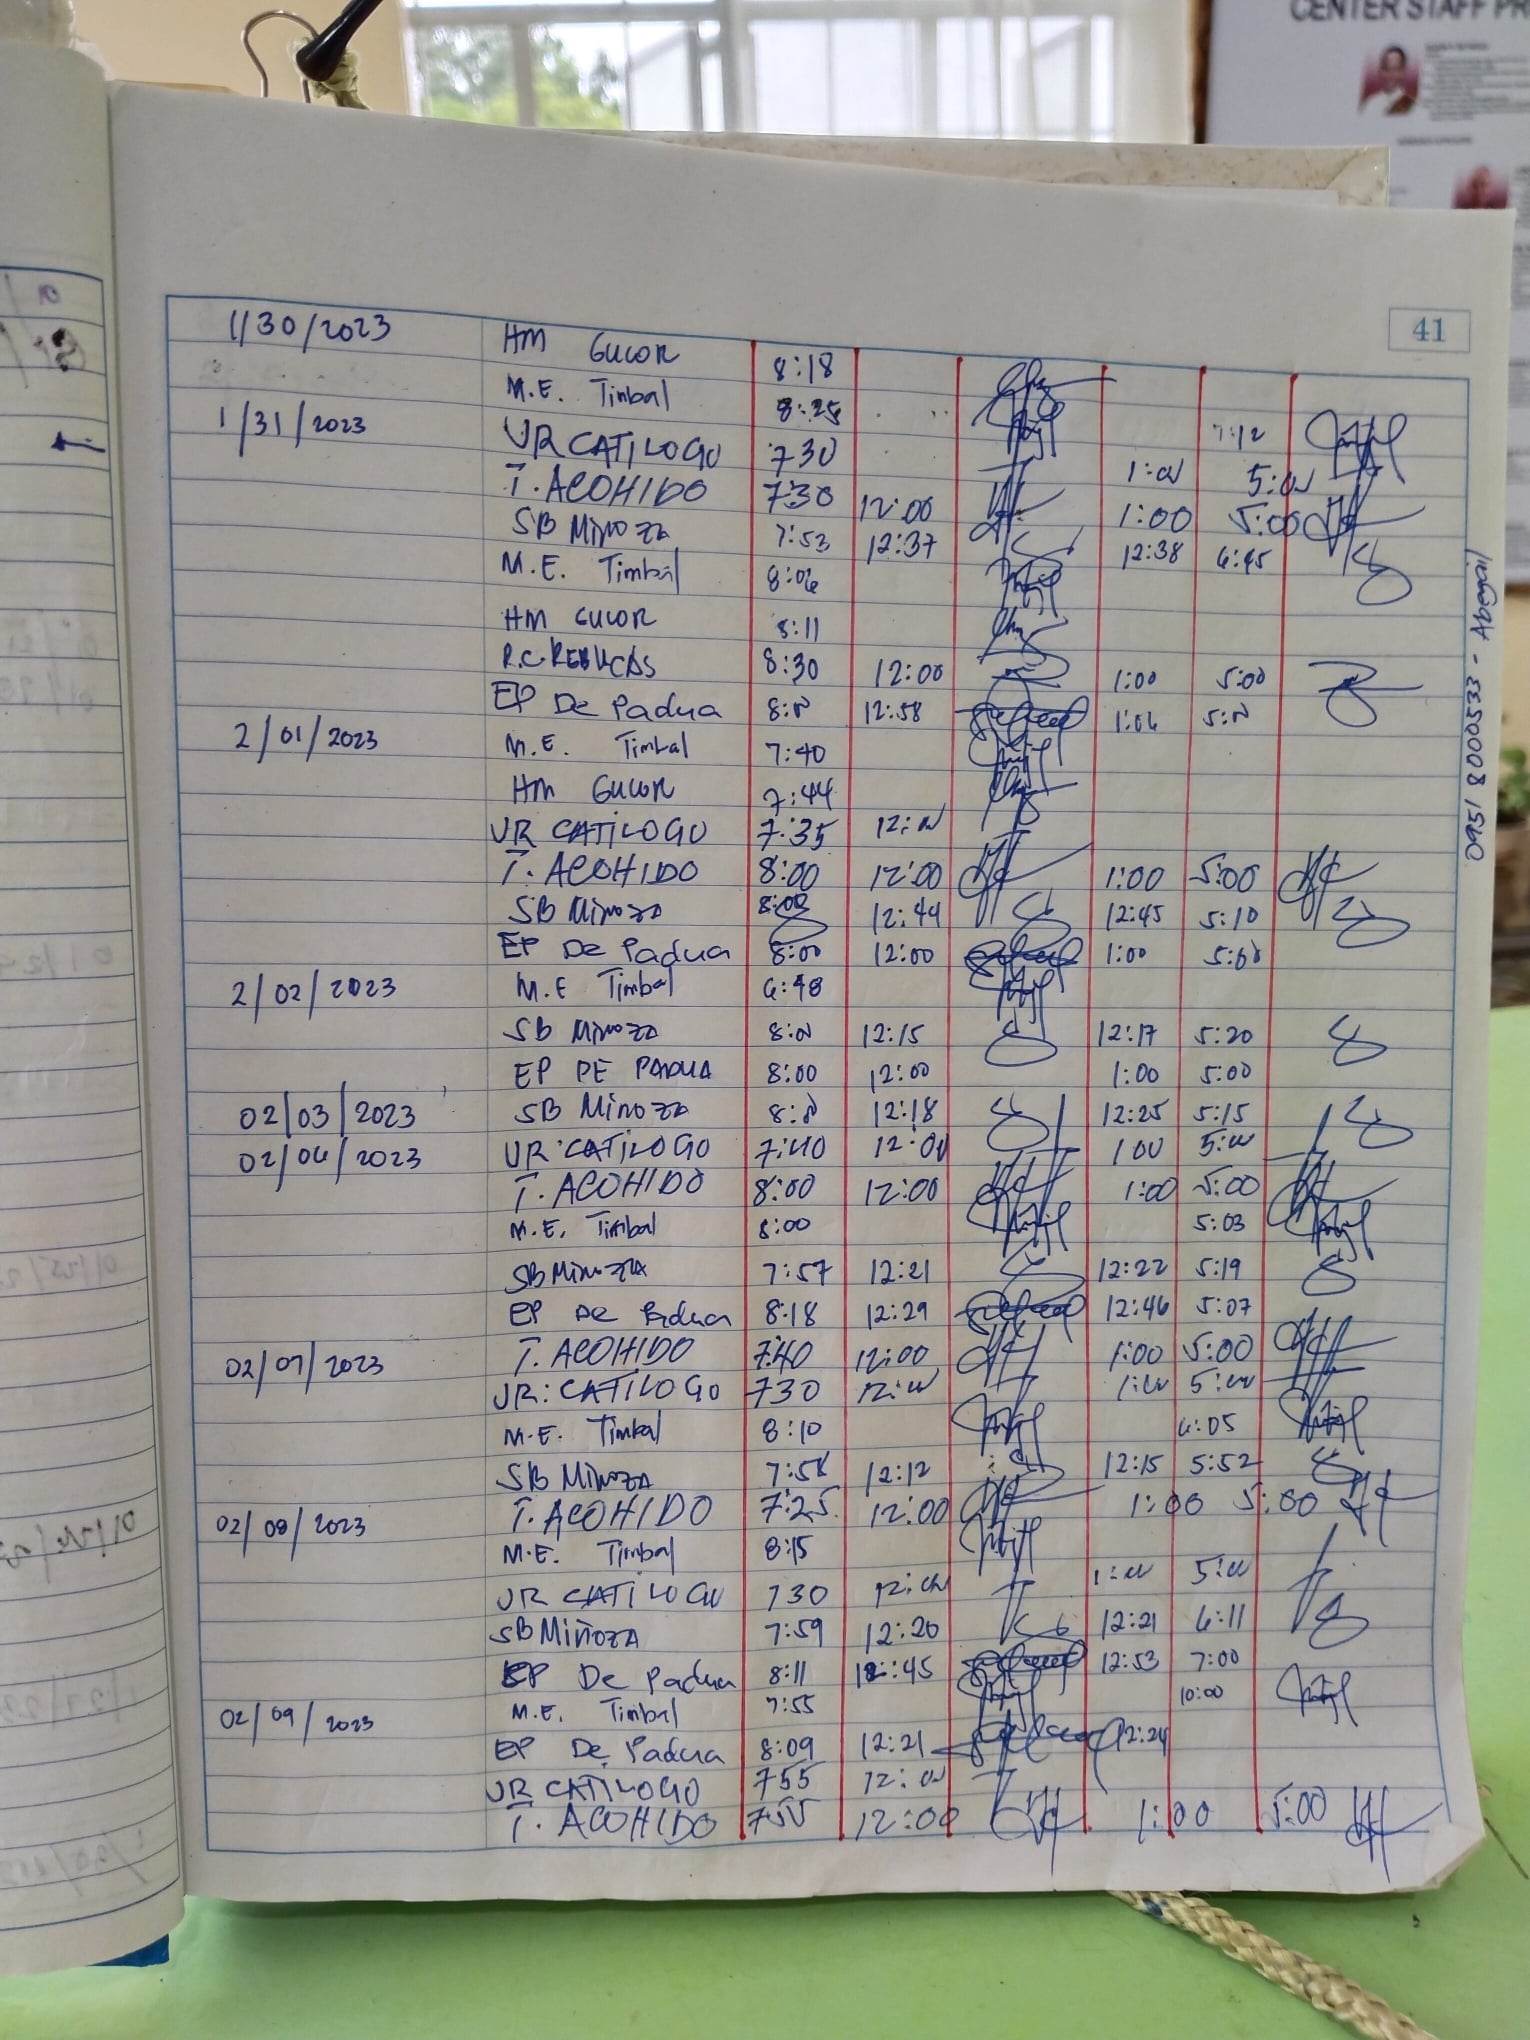 CENTER STAFF PR
41
1/30/2023 HM Gucor 8:18
M.E. Timbal 8:25 7:12
1/31/2023 JR CATILOGO 730 1:00 5:00
T. ACOHIDO 7:30 12:00 1:00 5:00
SB Minoza 7:53 12:37 12:38 6:45
M.E. Timbal 8:06
HM Gucor 8:11
R.C. REBUCAS 8:30 12:00 1:00 5:00
EP De Padua 8:00 12:58 1:06 5:00
2/01/2023 M.E. Timbal 7:40
HM Gucor 7:44
JR CATILOGO 7:35 12:00
T. ACOHIDO 8:00 12:00 1:00 5:00
SB Minoza 8:00 12:44 12:45 5:10
EP De Padua 8:00 12:00 1:00 5:00
2/02/2023 M.E Timbal 6:48
SB Minoza 8:00 12:15 12:17 5:20
EP DE PADUA 8:00 12:00 1:00 5:00
02/03/2023 SB Minoza 8:00 12:18 12:25 5:15
02/06/2023 JR CATILOGO 7:40 12:00 1 00 5:00
T. ACOHIDO 8:00 12:00 1:00 5:00
M.E. Timbal 8:00 5:03
SB Minoza 7:57 12:21 12:22 5:19
EP De Padua 8:18 12:29 12:46 5:07
02/07/2023 T. ACOHIDO 7:40 12:00 1:00 5:00
JR: CATILOGO 730 12:00 1:00 5:00
M.E. Timbal 8:10 6:05
SB Minoza 7:58 12:12 12:15 5:52
02/08/2023 T. ACOHIDO 7:25 12:00 1:00 5:00
M.E. Timbal 8:15
JR CATILOGO 730 12:00 1:00 5:00
SB Miñoza 7:59 12:20 12:21 6:11
EP De Padua 8:11 12:45 12:53 7:00
02/09/2023 M.E. Timbal 7:55 10:00
EP De Padua 8:09 12:21 12:24
JR CATILOGO 755 12:00
T. ACOHIDO 755 12:00 1:00 5:00
0951 8000533 - Abegail